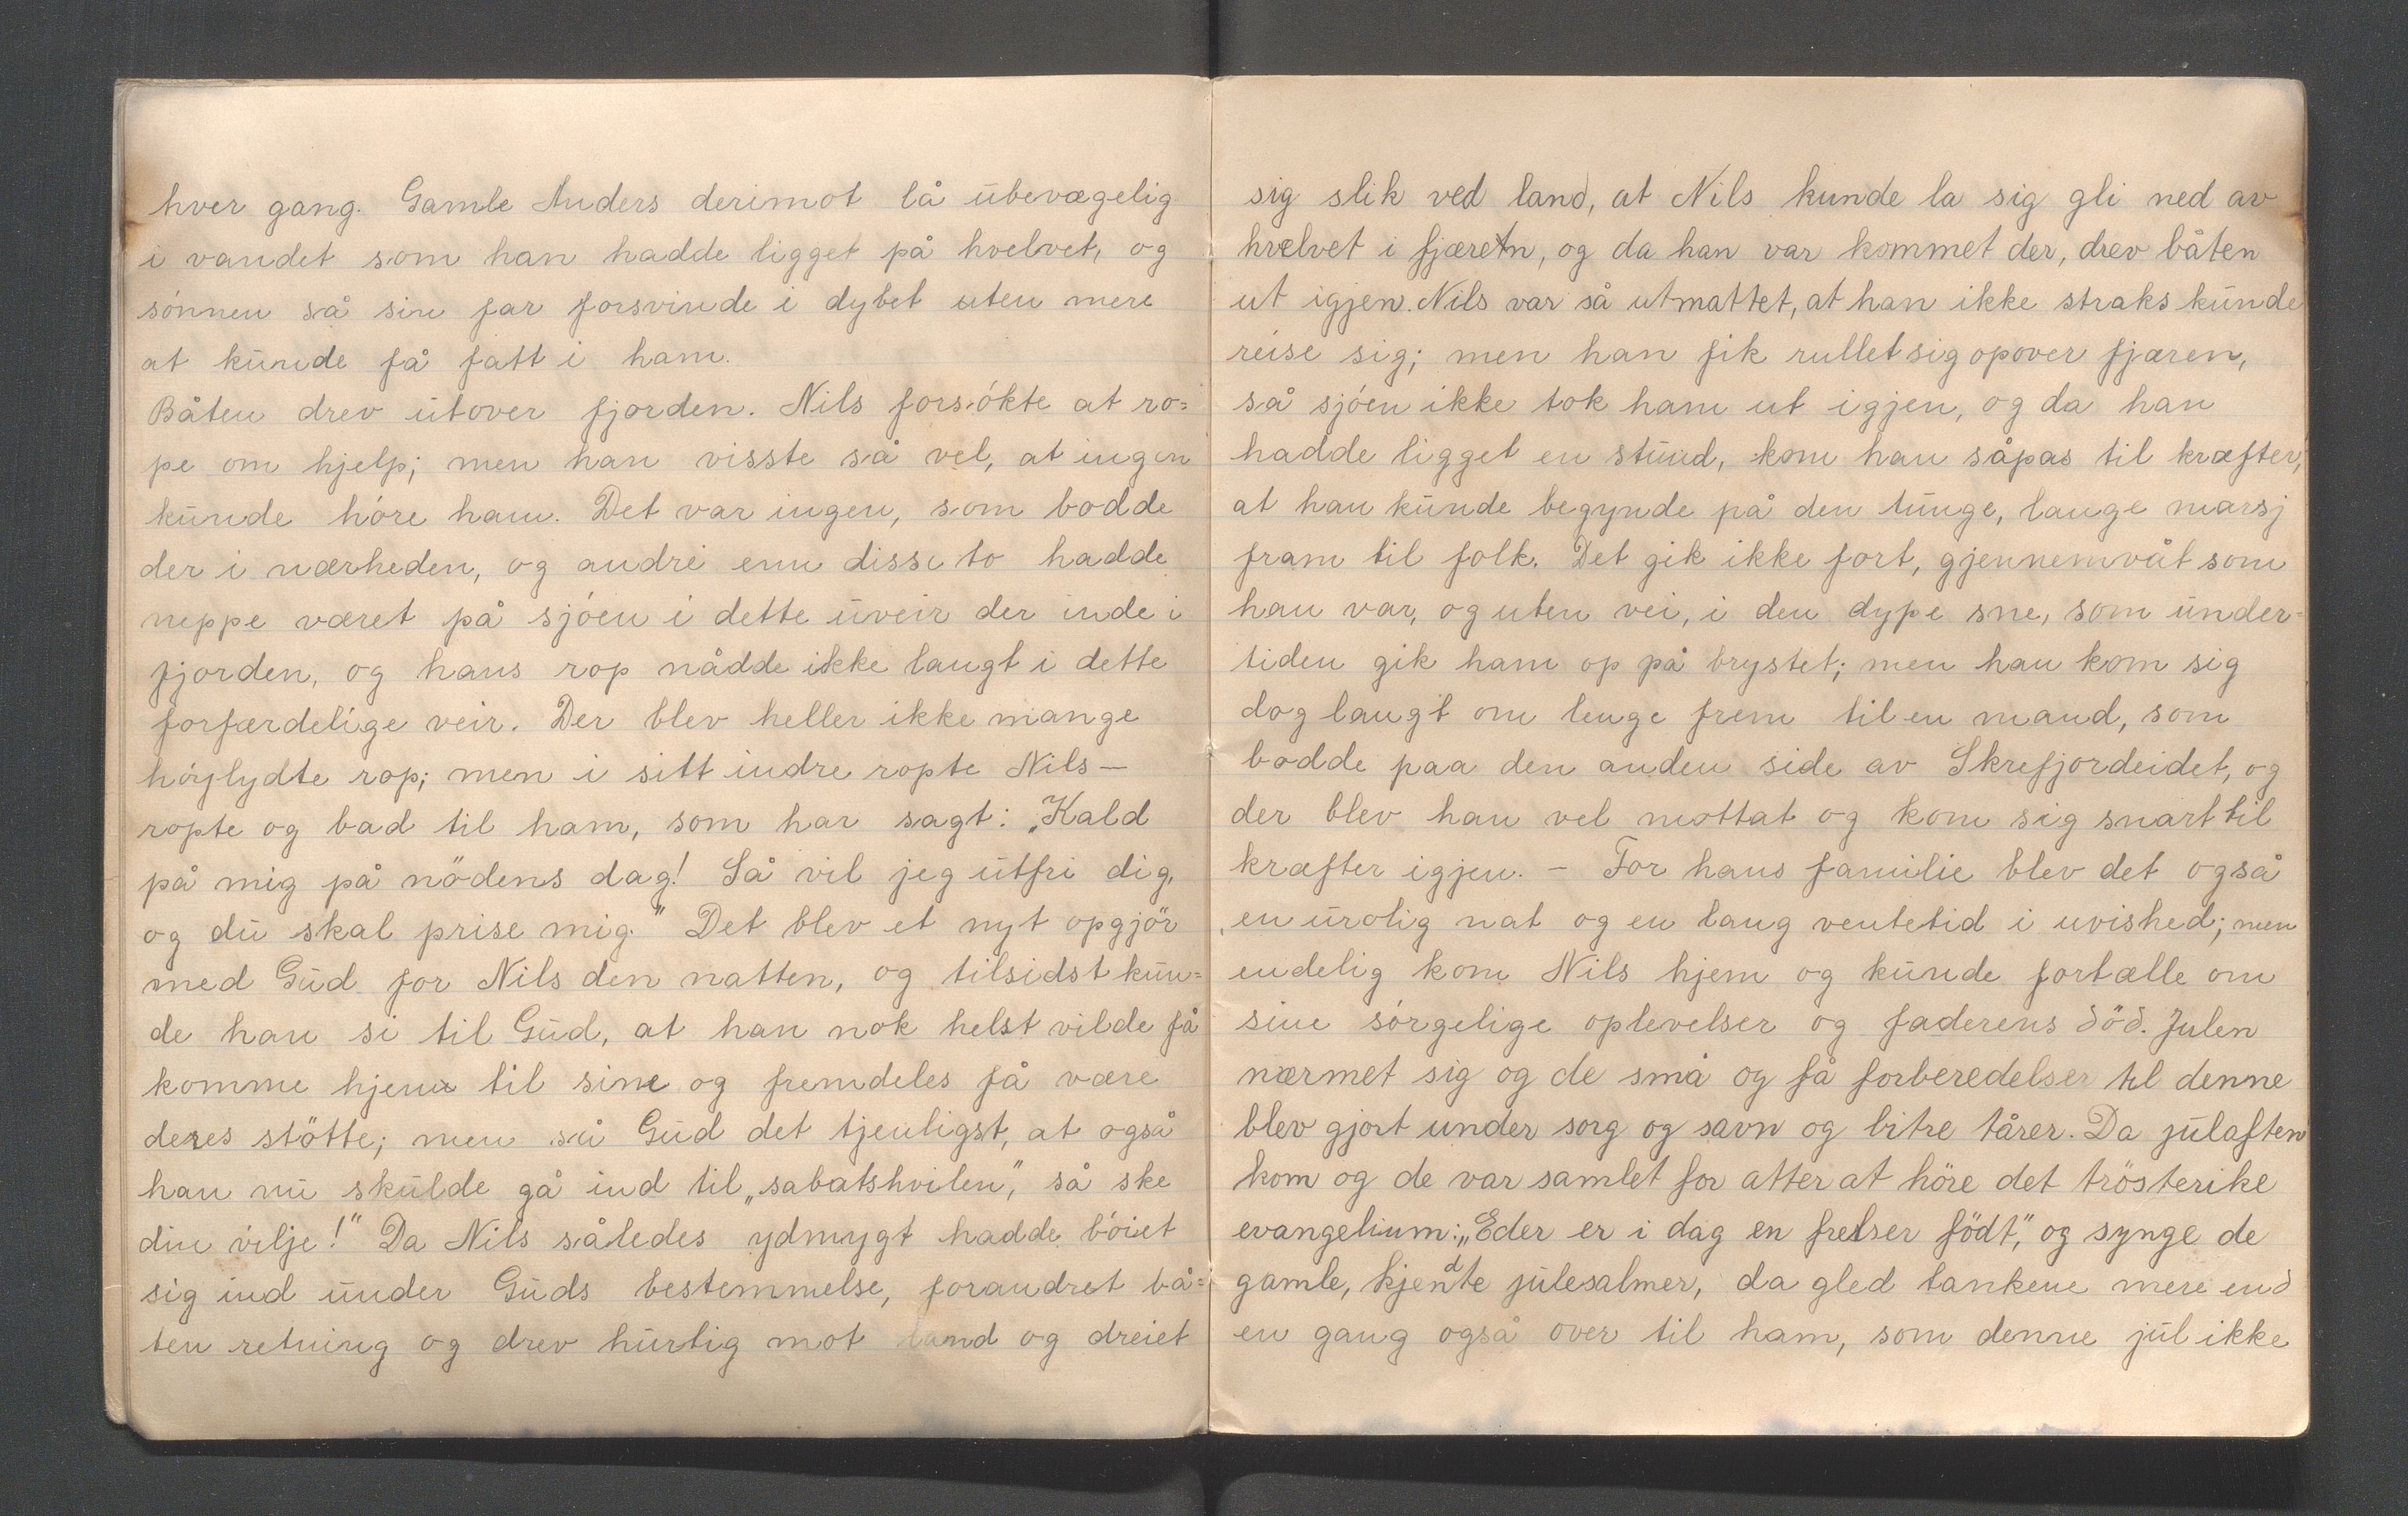 hver gang. Gamle Anders derimot lå ubevægelig
i vandet som han hadde ligget på hvelvet, og
sónnen så sin far forsvinde i dybet uten mere
at kunde få fatt i ham.
Båten drev utover fjorden. Nils forsókte at ro=
pe om hjelp; men han visste så vel, at ingen
kunde hóre ham. Det var ingen, som bodde
der i nærheden, og andre enn disse to hadde
neppe været på sjóen i dette uveir der inde i
fjorden, og hans rop nådde ikke langt i dette
forfærdelige veir. Der blev heller ikke mange
hójlydte rop; men i sitt indre ropte Nils —
ropte og bad til ham, som har sagt: „Kald
på mig på nödens dag! Så vil jeg utfri dig,
og du skal prise mig." Det blev et nyt opgjör
med Gud for Nils den natten, og tilsidst kun=
de han si til Gud, at han nok helst vilde få
komme hjem til sine og fremdeles få være
deres stötte; men så Gud det tjenligst, at også
han nu skulde gå ind til „sabatshvilen", så ske
din vilje!" Da Nils således ydmygt hadde bóiet
sig ind under Guds bestemmelse, forandret bå=
ten retning og drev hurtig mot land og dreiet
sig slik ved land, at Nils kunde la sig gli ned av
hvelvet i fjæren, og da han var kommet der, drev båten
ut igjen. Nils var så utmattet, at han ikke straks kunde
reise sig; men han fik rullet sig opover fjæren,
så sjóen ikke tok ham ut igjen, og da han
hadde ligget en stund, kom han såpas til kræfter,
at han kunde begynde på den tunge, lange marsj
fram til folk. Det gik ikke fort, gjennemvåt som
han var, og uten vei, i den dype sne, som under=
tiden gik ham op på brystet; men han kom sig
dog langt om lenge frem til en mand, som
bodde paa den anden side av Skrefjordeidet, og
der blev han vel mottat og kom sig snart til
kræfter igjen. – For hans familie blev det også
en urolig nat og en lang ventetid i uvished; men
endelig kom Nils hjem og kunde fortælle om
sine sórgelige oplevelser og faderens död. Julen
nærmet sig og de små og få forberedelser til denne
blev gjort under sorg og savn og bitre tårer. Da julaften
kom og de var samlet for atter at höre det trösterike
evangelium: „Eder er i dag en frelser födt", og synge de
gamle, kjendte julesalmer, da gled tankene mere end
en gang også over til ham, som denne jul ikke